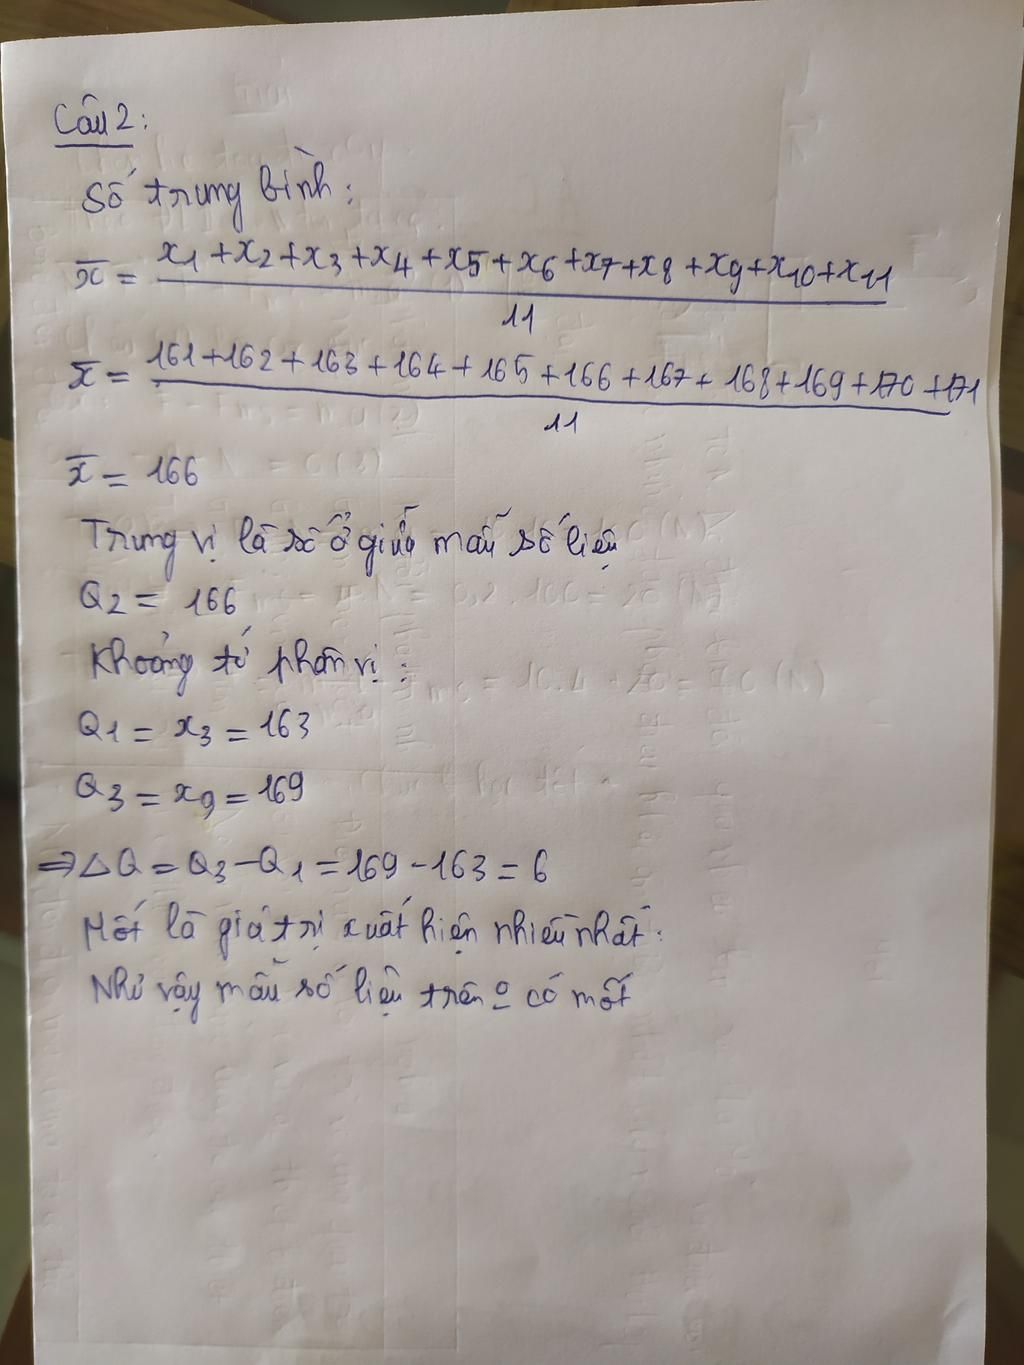 Câu 2:
Số trung bình:
x̄ = x1 + x2 + x3 + x4 + x5 + x6 + x7 + x8 + x9 + x10 + x11
11
x̄ = 161 + 162 + 163 + 164 + 165 + 166 + 167 + 168 + 169 + 170 + 171
11
x̄ = 166
Trung vị là số ở giữa mẫu số liệu
Q2 = 166
Khoảng tứ phân vị:
Q1 = x3 = 163
Q3 = x9 = 169
⇒ ΔQ = Q3 − Q1 = 169 − 163 = 6
Mốt là giá trị xuất hiện nhiều nhất:
Như vậy mẫu số liệu trên o có mốt